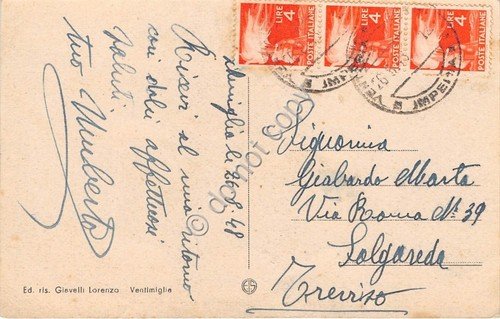 LIRE 4
POSTE ITALIANE
LIRE 4
POSTE ITALIANE
LIRE 4
POSTE ITALIANE
IMPERIA
li 26.8.48
Ricevi al mio ritorno
cari dolci affettuosi
saluti.
tuo Umberto
Signorina
Gisbardo Marta
Via Roma N° 39
Salgareda
Treviso
Ed. ris. Giavelli Lorenzo Ventimiglia
do not copy